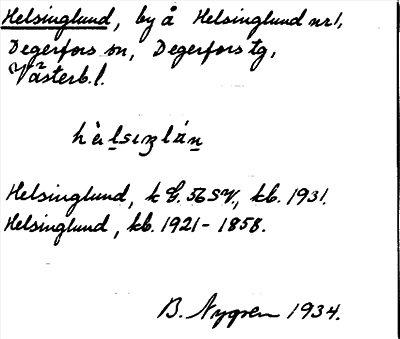 Helsinglund, by å Helsinglund nr 1,
Degerfors sn, Degerfors tg,
Västerb. l.
hèlsıŋlán
Helsinglund, k G. 56 SV., kb. 1931.
Helsinglund, kb. 1921-1858.
B. Nygren 1934.